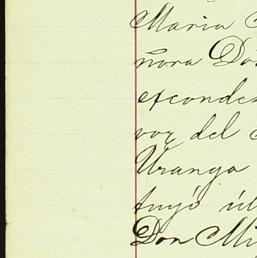 Maria
ñora Do
esconde
voz del
Uranga
tuyó úl
Don Mi